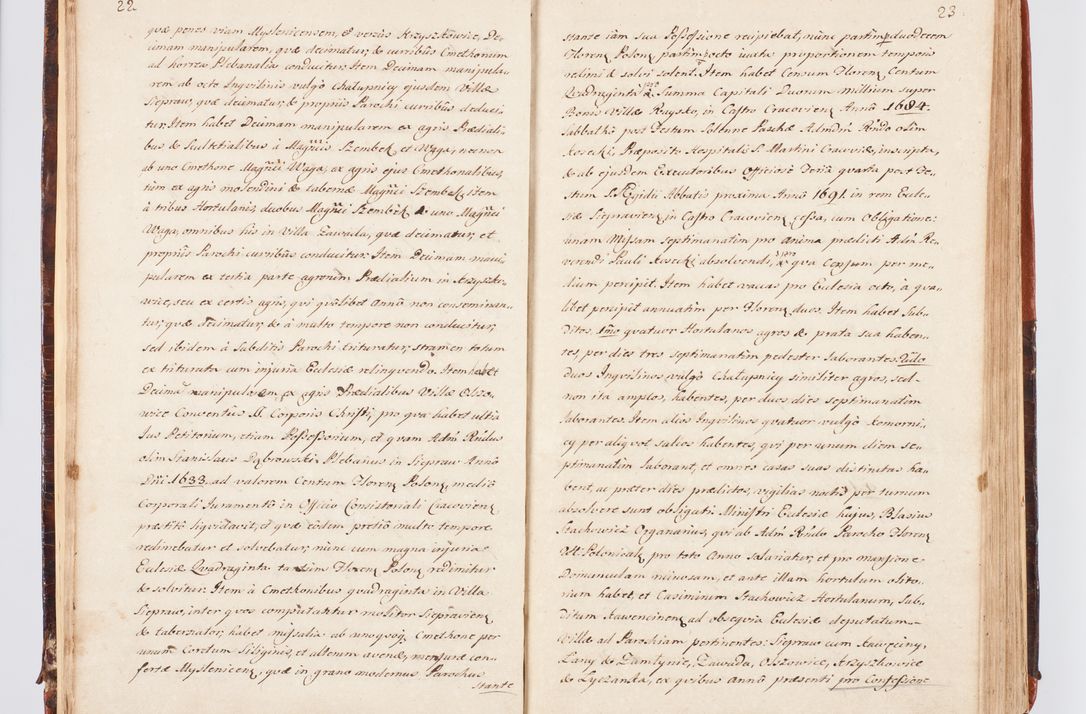 22
quæ penes viam Myslenicensem, et versus Krzyszkowice, De-
cimam manipularem, quæ decimatur, & curribus Cmethonum
ad horrea Plebanalia conducitur. Item Decimam manipula-
rem ab octo Inqvilinis vulgò Chałupnicy ejusdem Villæ
Siepraw, quæ decimatur, & propriis Parochi curribus deduci-
tur. Item habet Decimam manipularem ex agris Prædiali-
bus & Scultetialibus à Magcis Szembek, et Waga, nec non
ab uno Cmethone Magci Waga, ex agris ejus Cmethonalibus,
tum ex agris molendini & tabernæ Magci Szembek, item
à tribus Hortulanis, duobus Magci Szembek & uno Magci
Waga, omnibus his in Villa Zawada, quæ decimatur, et
propriis Parochi curribus conducitur. Item Decimam mani-
pularem ex tertia parte agrorum Prædialium in Krzyszko-
wice, seu ex certis agris, qui quolibet Anno non conseminan-
tur, quæ decimatur, & à multo tempore non conducitur,
sed ibidem à Subditis Parochi trituratur, stramen totum
ex triturata cum injuria Eclesiæ relinquendo. Item habet
Decimã manipularem ex agris Prædialibus Villæ Olszo-
wice Conventus SS. Corporis Christi, pro qua habet ultra
Jus Petitorium, etiam Possessorium, et quam Admd Rńdus
olim Stanislaus Dąbrowski Plebanus in Siepraw Anno
Dni 1633. ad valorem Centum Floren Polon, mediò
Corporali Juramentò in Officio Consistoriali Cracovien
præstitò liqvidavit, et quæ eodem pretiò multo tempore
redimebatur et solvebatur, nunc cum magna injuria
Eclesiæ Quadraginta tantum Floren Polon redimitur
& solvitur. Item à Cmethonibus quadraginta in Villa
Siepraw, inter quos computantur molitor Siepravien
& tabernator, habet missalia ab unoqvoq Cmethone per
unum Coretum Siliginis, et alterum avenæ, mensuræ con-
fertæ Myslenicen, quæ in grano modernus Parochus
stante
23
stante iam sua Possessione recipiebat, nunc partim duodecem
Floren Polon partim octo iuxta proportionem temporis
redimi & solvi solent. Item habet Censum Floren Centum
Quadraginta à Summa Capitali Duorum millium super
Bonis Villæ Raysko, in Castro Cracovien Annô 1684.
Sabbathô post Festum Solenne Paschæ Admdm Rńdo olim
Kosecki, Præposito Hospitalis S. Martini Cracoviæ, inscripta,
& ab ejusdem Executoribus Officiosè Feriã quarta post Fe-
stum S. Egidii Abbatis proxima Annô 1691. in rem Ecle-
siæ Siepravien, in Castro Cracovien cessa, cum Obligatione:
unam Missam septimanatim pro anima prædicti Adm Re-
verendi Pauli Kosecki absolvendi, à qua Censum per me-
dium percipit. Item habet vaccas pro Eclesia octo, à qua-
libet percipit annuatim per Floren duos. Item habet Sub-
ditos. 1mo quatuor Hortulanos agros & prata sua haben-
tes, per dies tres septimanatim pedester laborantes. 2do
duos Inqvilinos vulgò Chałupnicy similiter agros, sed
non ita amplos, habentes, per duos dies septimanatim
laborantes. Item alios Inqvilinos quatuor vulgò Komorni-
cy per aliqvot salios habentes, qui per unum diem se-
ptimanatim laborant, et omnes casas suas distinctas ha-
bent, ac præter dies prædictos, vigilias noctis per turnum
absolvere sunt obligati. Ministri Eclesiæ hujus, Blasius
Stachowicz Organarius, qui ab Adm Rńdo Parocho Floren
XII Polonical, pro toto Anno salariatur, et pro mansione
Domunculam minusam, et ante illam hortulum olito-
rium habet, et Casimirum Stachowicz Hortulanum, Sub-
ditum Stawencinen ad obseqvia Eclesiæ deputatum.
Villæ ad Parochiam pertinentes: Siepraw cum Stawęciny,
Łany & Zamłynie, Zawada, Olszowice, Krzyszkowice
& Łyczanka, ex quibus Annô præsenti pro Confessione